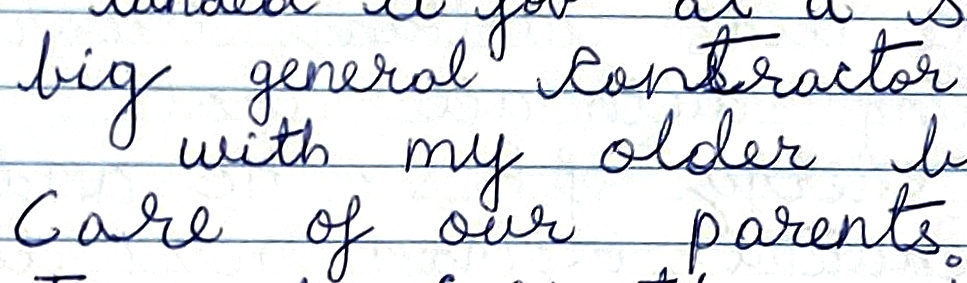 landed a job at a s
big general contractor
with my older b
Care of our parents.